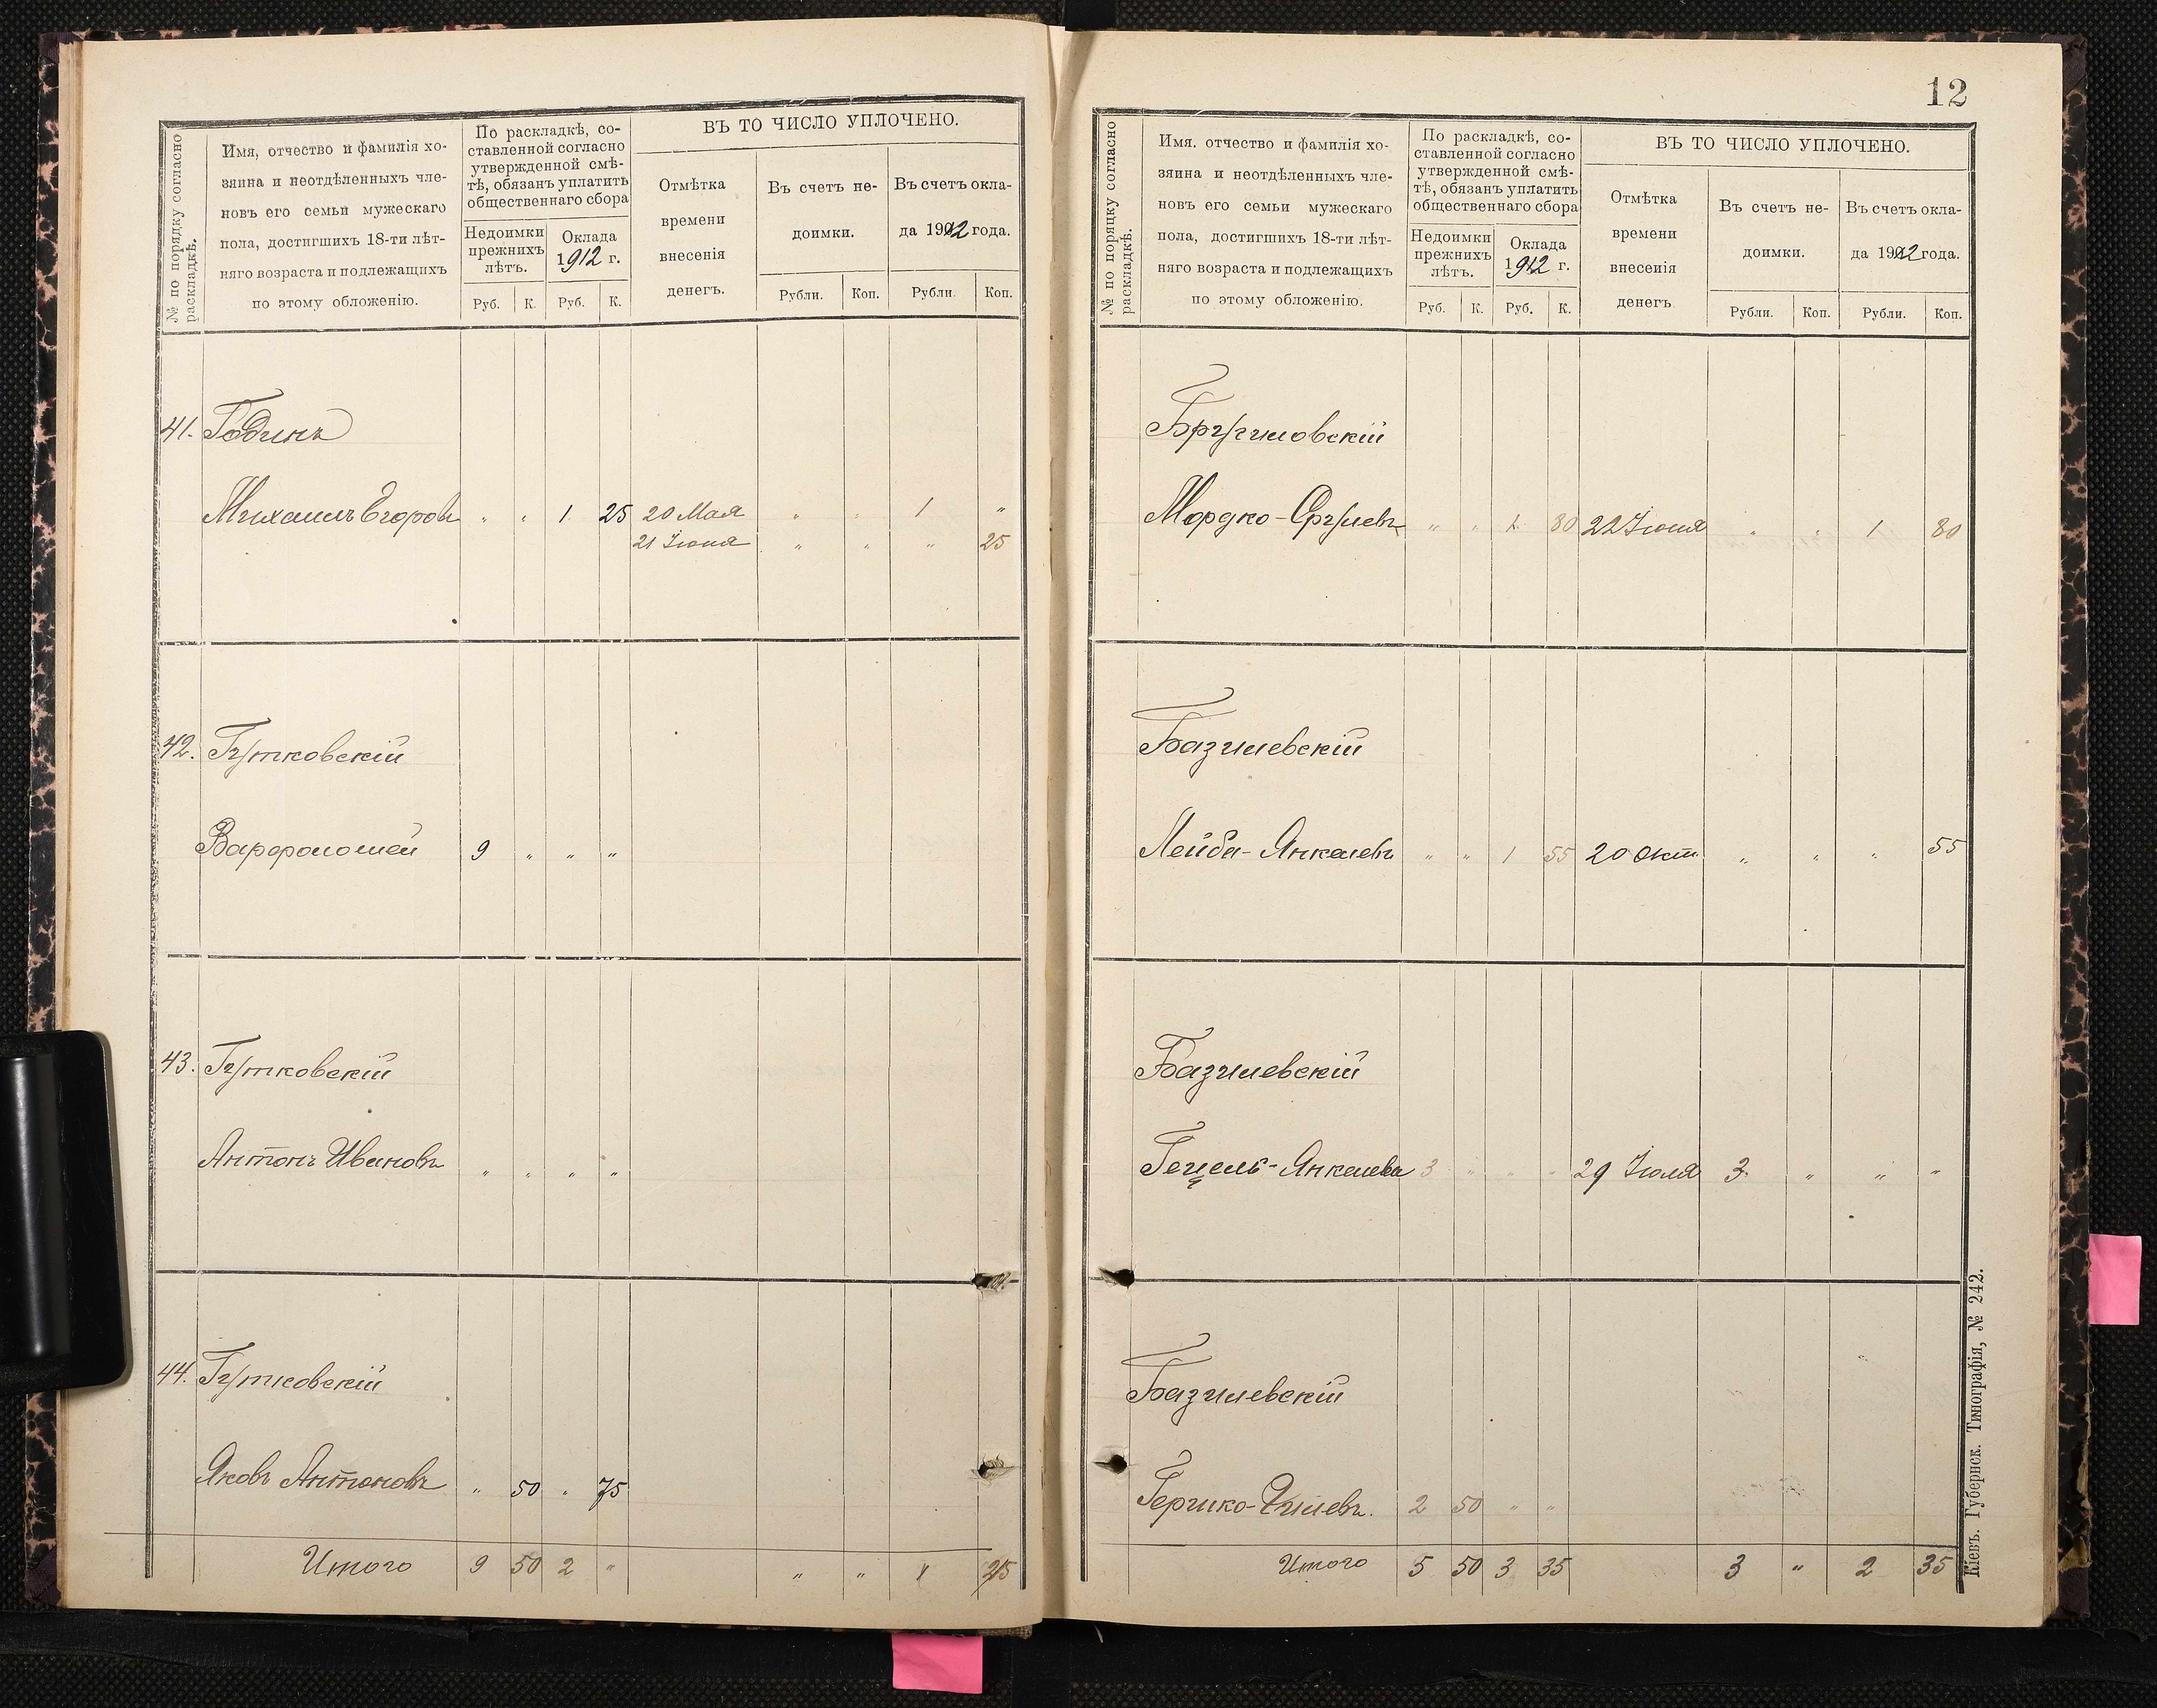 № по порядку согласно
раскладкѣ.
Имя, отчество и фамилія хо-
зяина и неотдѣленныхъ чле-
новъ его семьи мужескаго
пола, достигшихъ 18-ти лѣт-
няго возраста и подлежащихъ
по этому обложенію.
По раскладкѣ, со-
ставленной согласно
утвержденной смѣ-
тѣ, обязанъ уплатить
общественнаго сбора
Недоимки
прежнихъ
лѣтъ.
Оклада
1912 г.
Руб. К. Руб. К.
ВЪ ТО ЧИСЛО УПЛОЧЕНО.
Отмѣтка
времени
внесенія
денегъ.
Въ счетъ не-
доимки.
Въ счетъ окла-
да 1912 года.
Рубли. Коп. Рубли. Коп.
41. Годинъ
Михаилъ Егоровъ " " 1 25 20 Мая " " 1 "
21 Іюня " " " 25
42. Гутковскій
Варфоломей 9 " " "
43. Гутковскій
Антонъ Ивановъ " " " "
44. Гутковскій
Яковъ Антоновъ " 50 " 75
Итого 9 50 2 " " " 1 25
12
№ по порядку согласно
раскладкѣ.
Имя. отчество и фамилія хо-
зяина и неотдѣленныхъ чле-
новъ его семьи мужескаго
пола, достигшихъ 18-ти лѣт-
няго возраста и подлежащихъ
по этому обложенію.
По раскладкѣ, со-
ставленной согласно
утвержденной смѣ-
тѣ, обязанъ уплатить
общественнаго сбора
Недоимки
прежнихъ
лѣтъ.
Оклада
1912 г.
Руб. К. Руб. К.
ВЪ ТО ЧИСЛО УПЛОЧЕНО.
Отмѣтка
времени
внесенія
денегъ
Въ счетъ не-
доимки.
Въ счетъ окла-
да 1912 года.
Рубли. Коп. Рубли. Коп.
Бругиловскій
Мордко-Срулевъ " " 1 80 22 Іюня " " 1 80
Базилевскій
Лейба-Янкелевъ " " 1 55 20 Окт. " " " 55
Базилевскій
Гецель-Янкелевъ 3 " " " 29 Іюля 3 " " "
Базилевскій
Гершко-Хилевъ. 2 50 " "
Итого 5 50 3 35 3 " 2 35
Кіевъ. Губернск. Типографія, № 242.